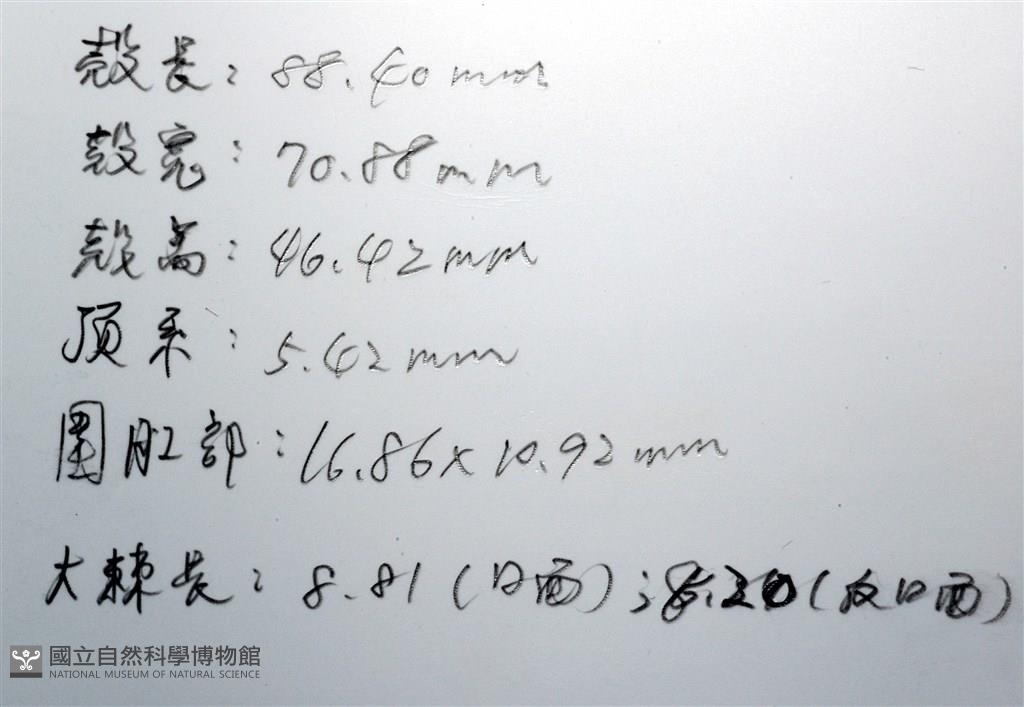 殼長：88.40mm
殼寬：70.88mm
殼高：46.42mm
頂系：5.42mm
圍肛部：16.86x10.92mm
大棘長：8.81（口面）；（反口面）
國立自然科學博物館
NATIONAL MUSEUM OF NATURAL SCIENCE